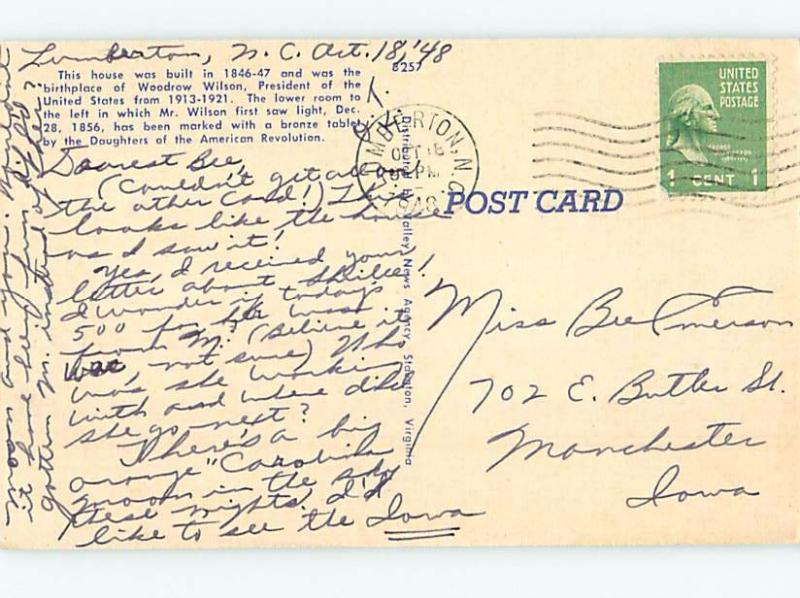 Lumberton, N. C. Oct. 18, '48
8257
This house was built in 1846-47 and was the
birthplace of Woodrow Wilson, President of the
United States from 1913-1921. The lower room to
the left in which Mr. Wilson first saw light, Dec.
28, 1856, has been marked with a bronze tablet
by the Daughters of the American Revolution.
Dearest Bee,
(Couldn't get all on
the other card!) This
looks like the house
as I saw it!
Yes, I received your
letter about
I wonder if today's
500 for her was
from M. (Believe it
was, not sure) Who
was she working
with and where did
she go next?
There's a big
orange "Carolina
moon in the sky
these nights. I'd
like to see the Iowa
moon and you.
it have been fun if I'd
gotten M. instead of her?
Distributed by Valley News Agency, Staunton, Virginia
LUMBERTON, N.C.
OCT 18
PM
1948
UNITED
STATES
POSTAGE
1 CENT 1
POST CARD
Miss Bee Emerson
702 E. Butler St.
Manchester
Iowa